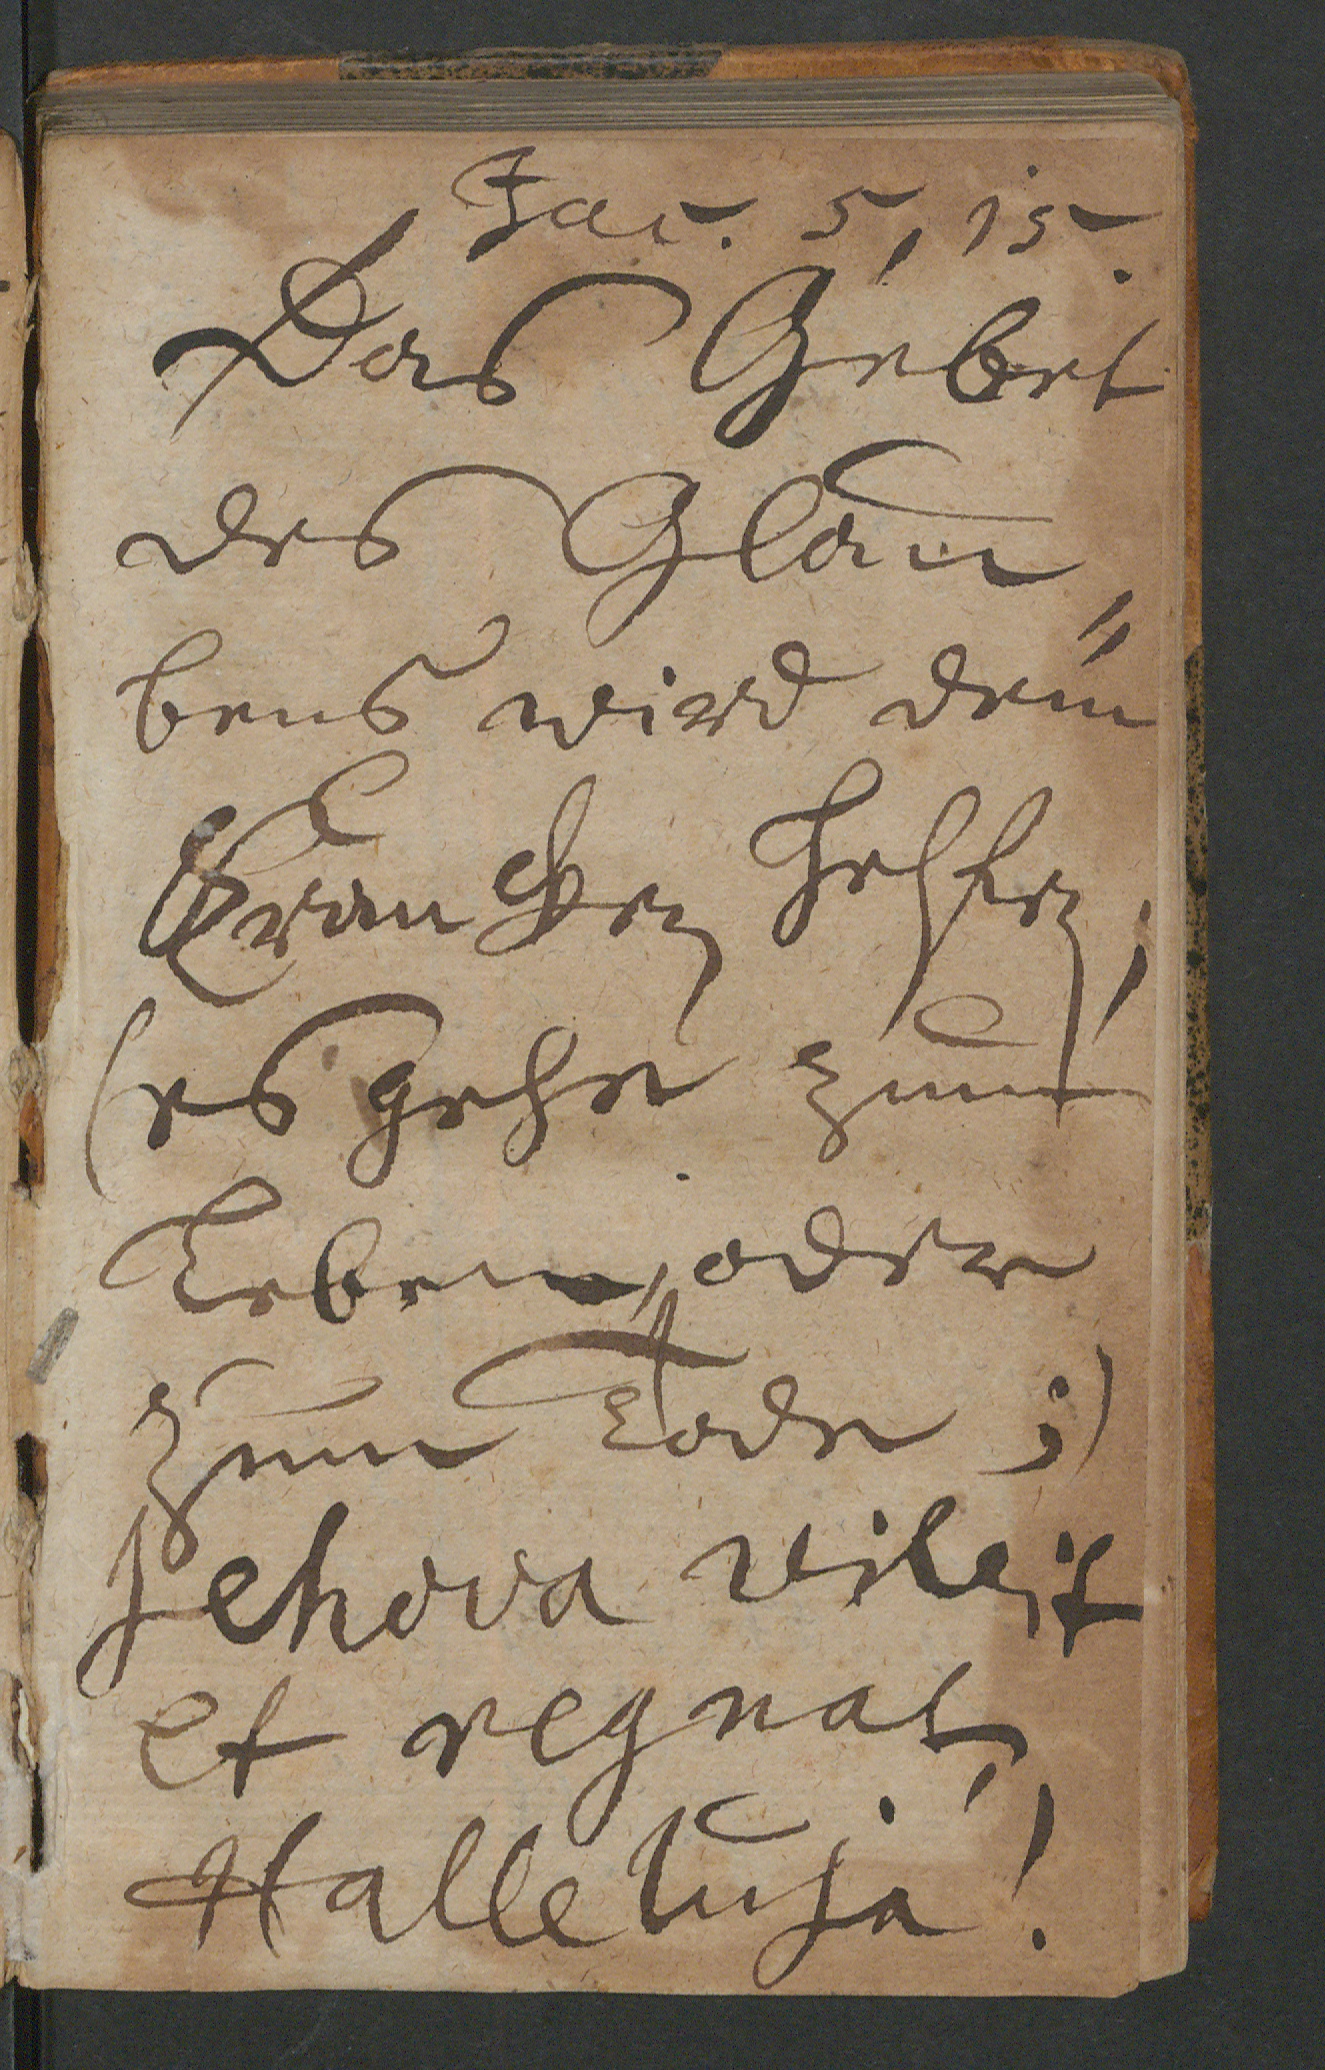 Jac. 5, 15.
Das Gebet
des Glau=
bens wird dem
Krancken helffen,
(es gehe zum
Leben, oder
zum Tode ;)
Jehova
et regnat,
Halleluja!